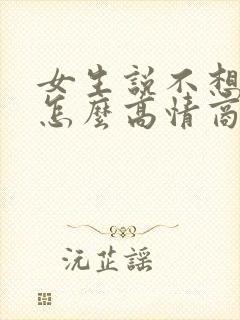 女生説不想
怎麼高情商
沅芷謡